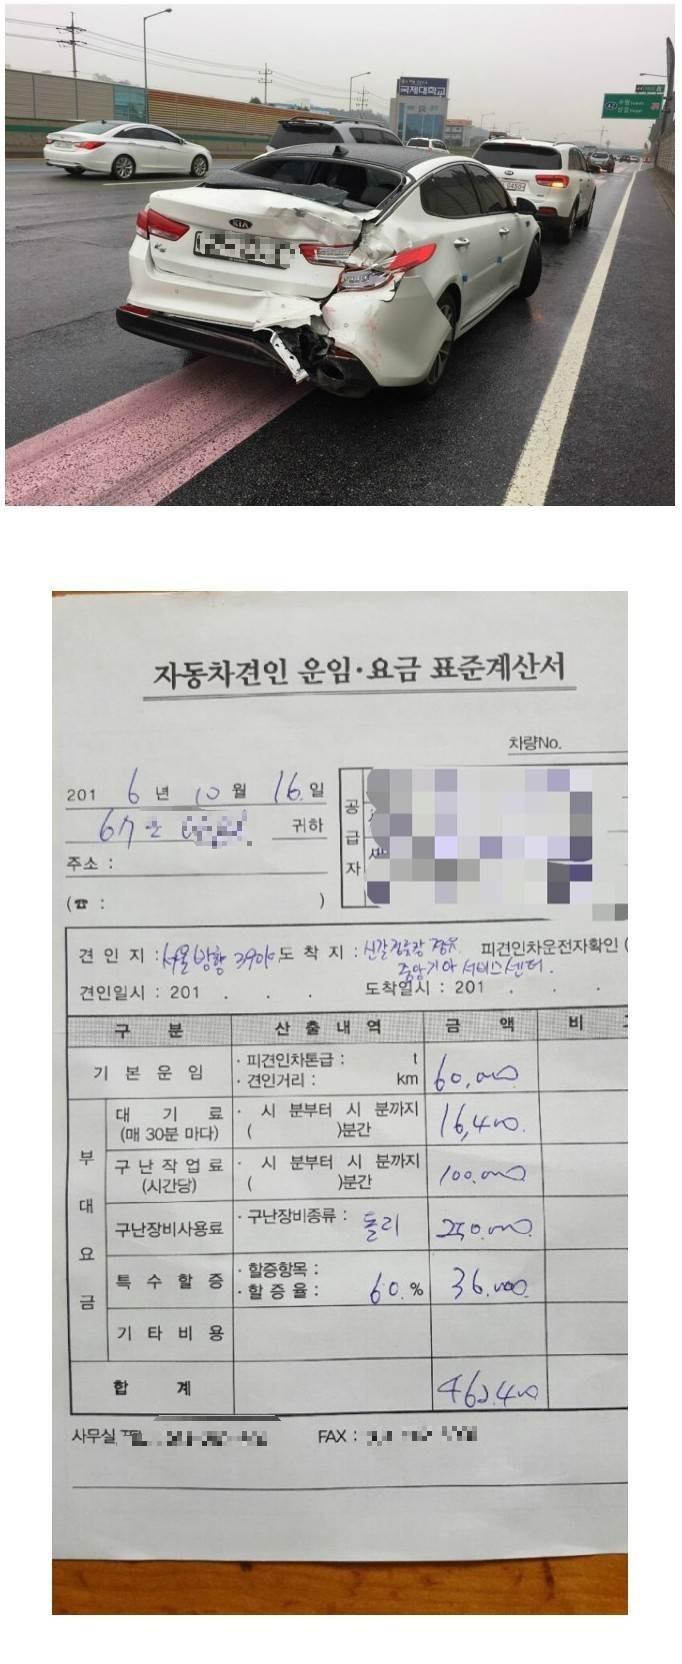 국제대학교
KIA
K5
자동차견인 운임·요금 표준계산서
차량No.
201 6 년 10 월 16. 일
귀하
주소 :
(☎ : )
공급자
견 인 지 : 서울방향 도 착 지 : 신갈정류장 경유 피견인차운전자확인 (
중앙기아서비스센터.
견인일시 : 201 . . . 도착일시 : 201 . . .
구 분 산 출 내 역 금 액 비
기 본 운 임 · 피견인차톤급 : t
· 견인거리 : km 60,000
부대요금
대 기 료 · 시 분부터 시 분까지 16,400.
(매 30분 마다) ( )분간
구 난 작 업 료 · 시 분부터 시 분까지 100.000
(시간당) ( )분간
구난장비사용료 · 구난장비종류 : 돌리 250.000
특 수 할 증 · 할증항목 :
· 할 증 율 : 60. % 36.000
기 타 비 용
합 계 462.400
사무실 FAX :